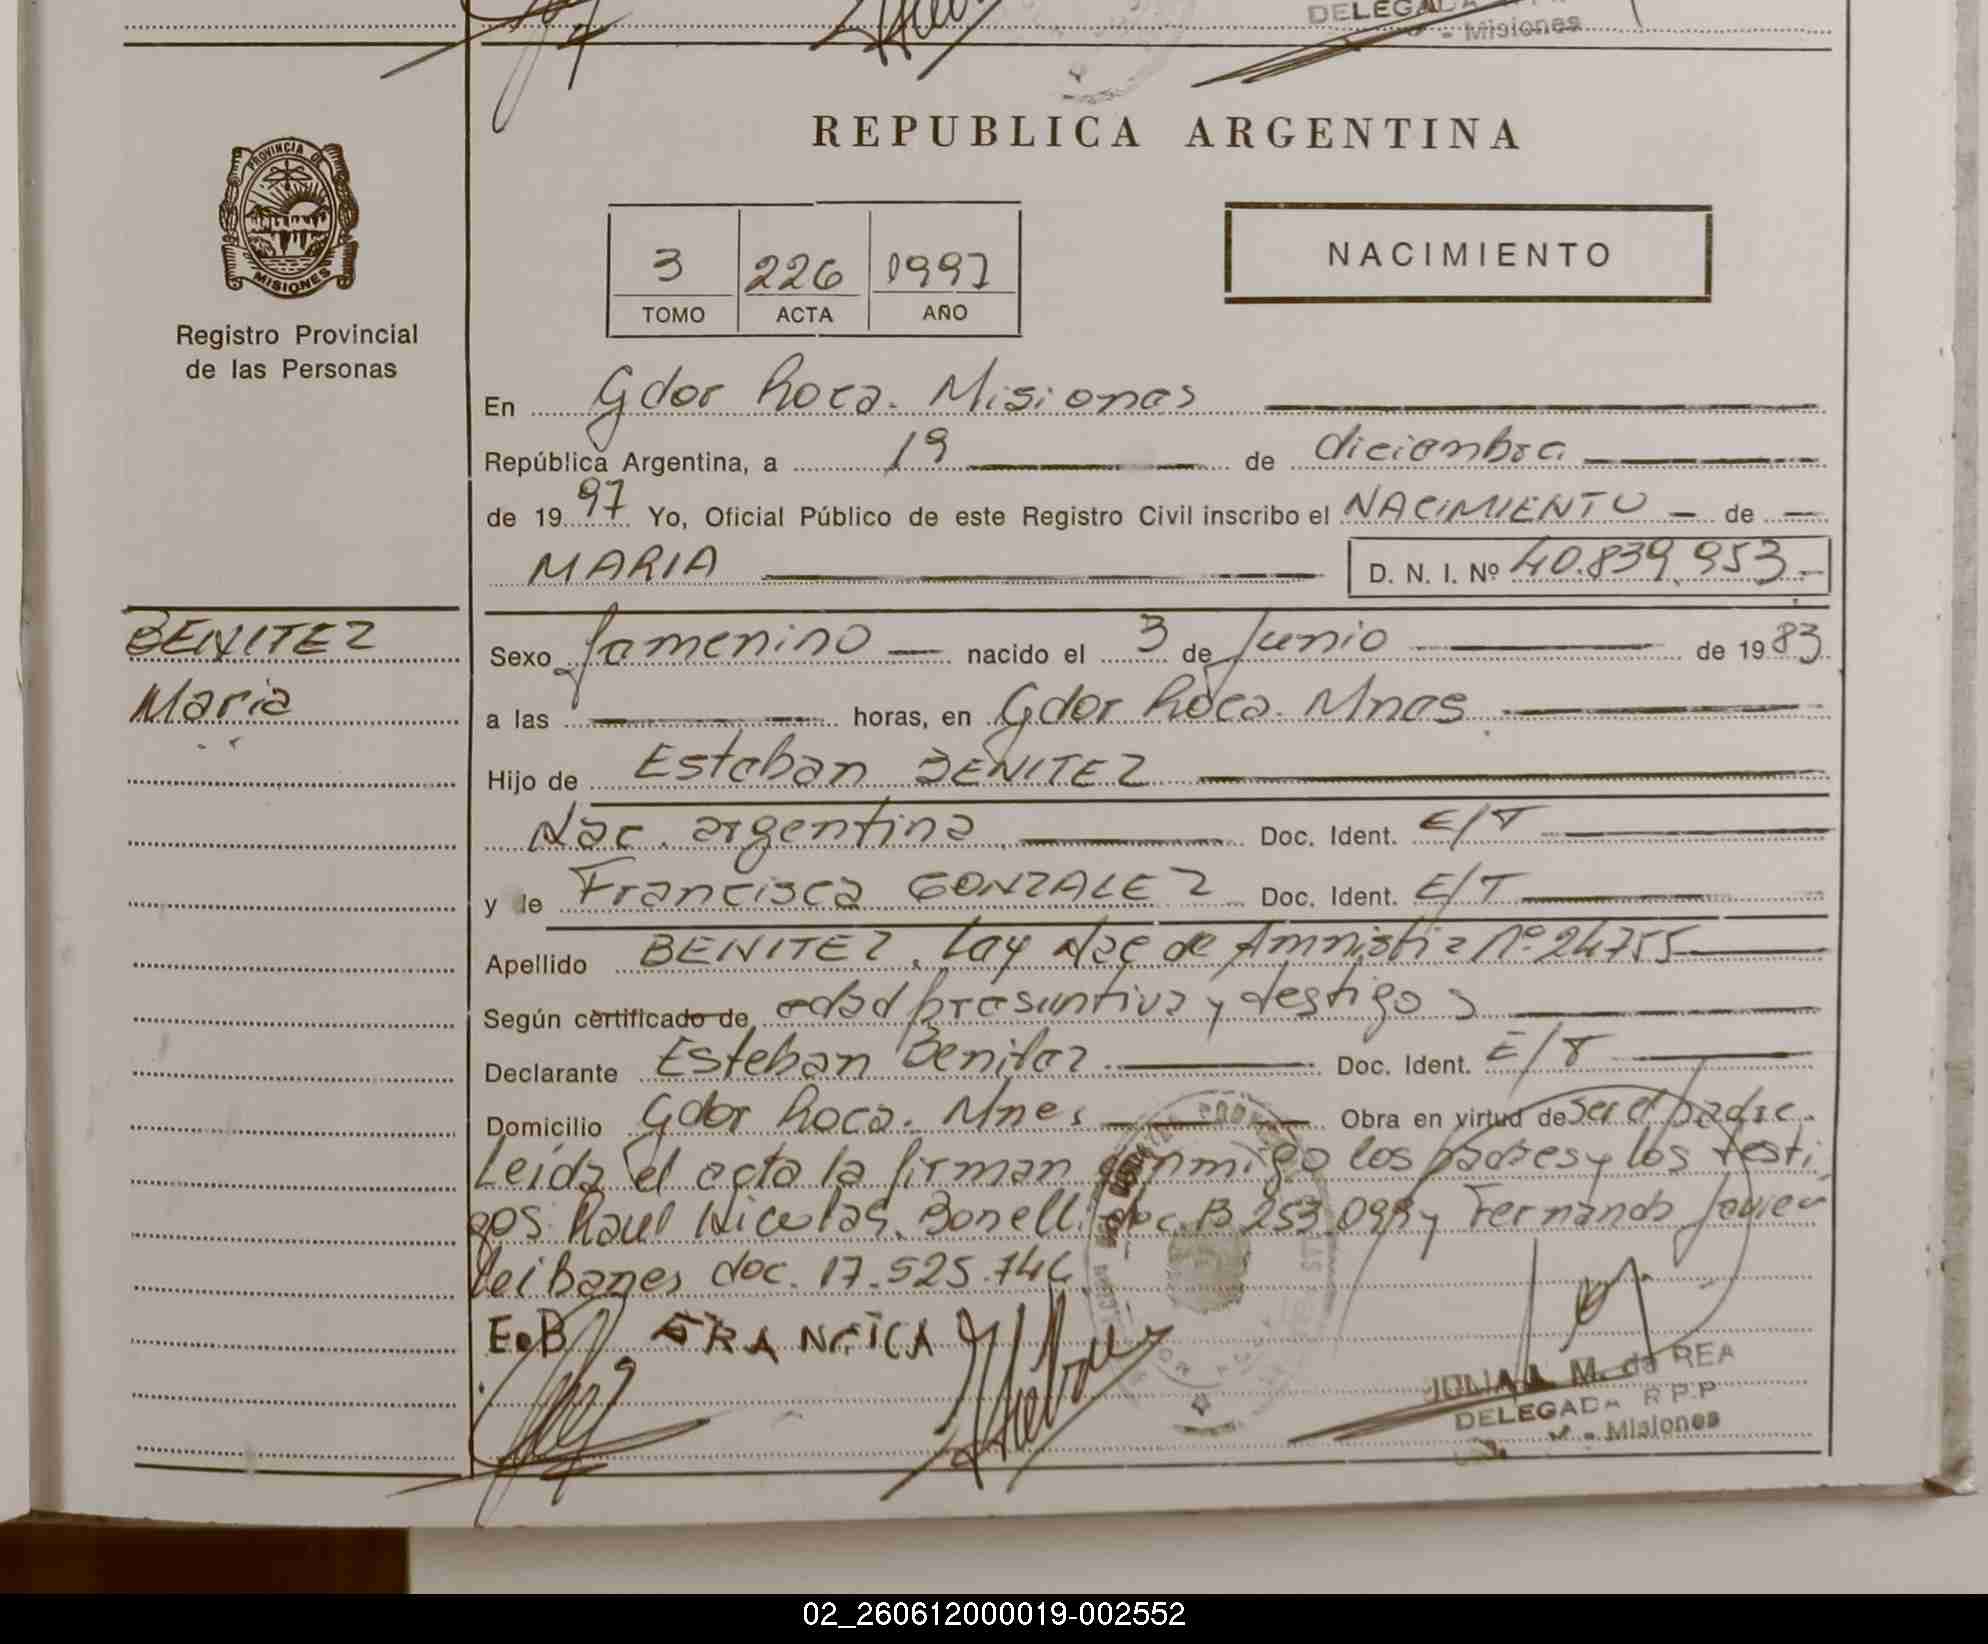 DELEGADA
- Misiones
REPUBLICA ARGENTINA
PROVINCIA DE
MISIONES
Registro Provincial
de las Personas
3 226 1997
TOMO ACTA AÑO
NACIMIENTO
En Gdor Roca. Misiones
República Argentina, a 19 de diciembre
de 1997 Yo, Oficial Público de este Registro Civil inscribo el NACIMIENTO - de -
MARIA D. N. I. Nº 40.839.953.-
BENITEZ
Maria
Sexo femenino nacido el 3 de Junio de 1983
a las horas, en Gdor Roca. Mnes
Hijo de Esteban BENITEZ
Nac. argentina Doc. Ident. E/T
y de Francisca GONZALEZ Doc. Ident. E/T
Apellido BENITEZ. Ley Nac de Amnistia Nº 24755
Según certificado de edad presuntiva y testigos
Declarante Esteban Benitez Doc. Ident. E/T
Domicilio Gdor Roca. Mnes Obra en virtud de ser el padre.
Leída el acta la firman conmigo los padres y los testi
gos Raul Nicolas Bonell doc. 8 253 099 y Fernando Javier
Leibanes doc. 17.525.746
E.B FRANCICA
M. de REA
DELEGADA R P P
- Misiones
02_260612000019-002552